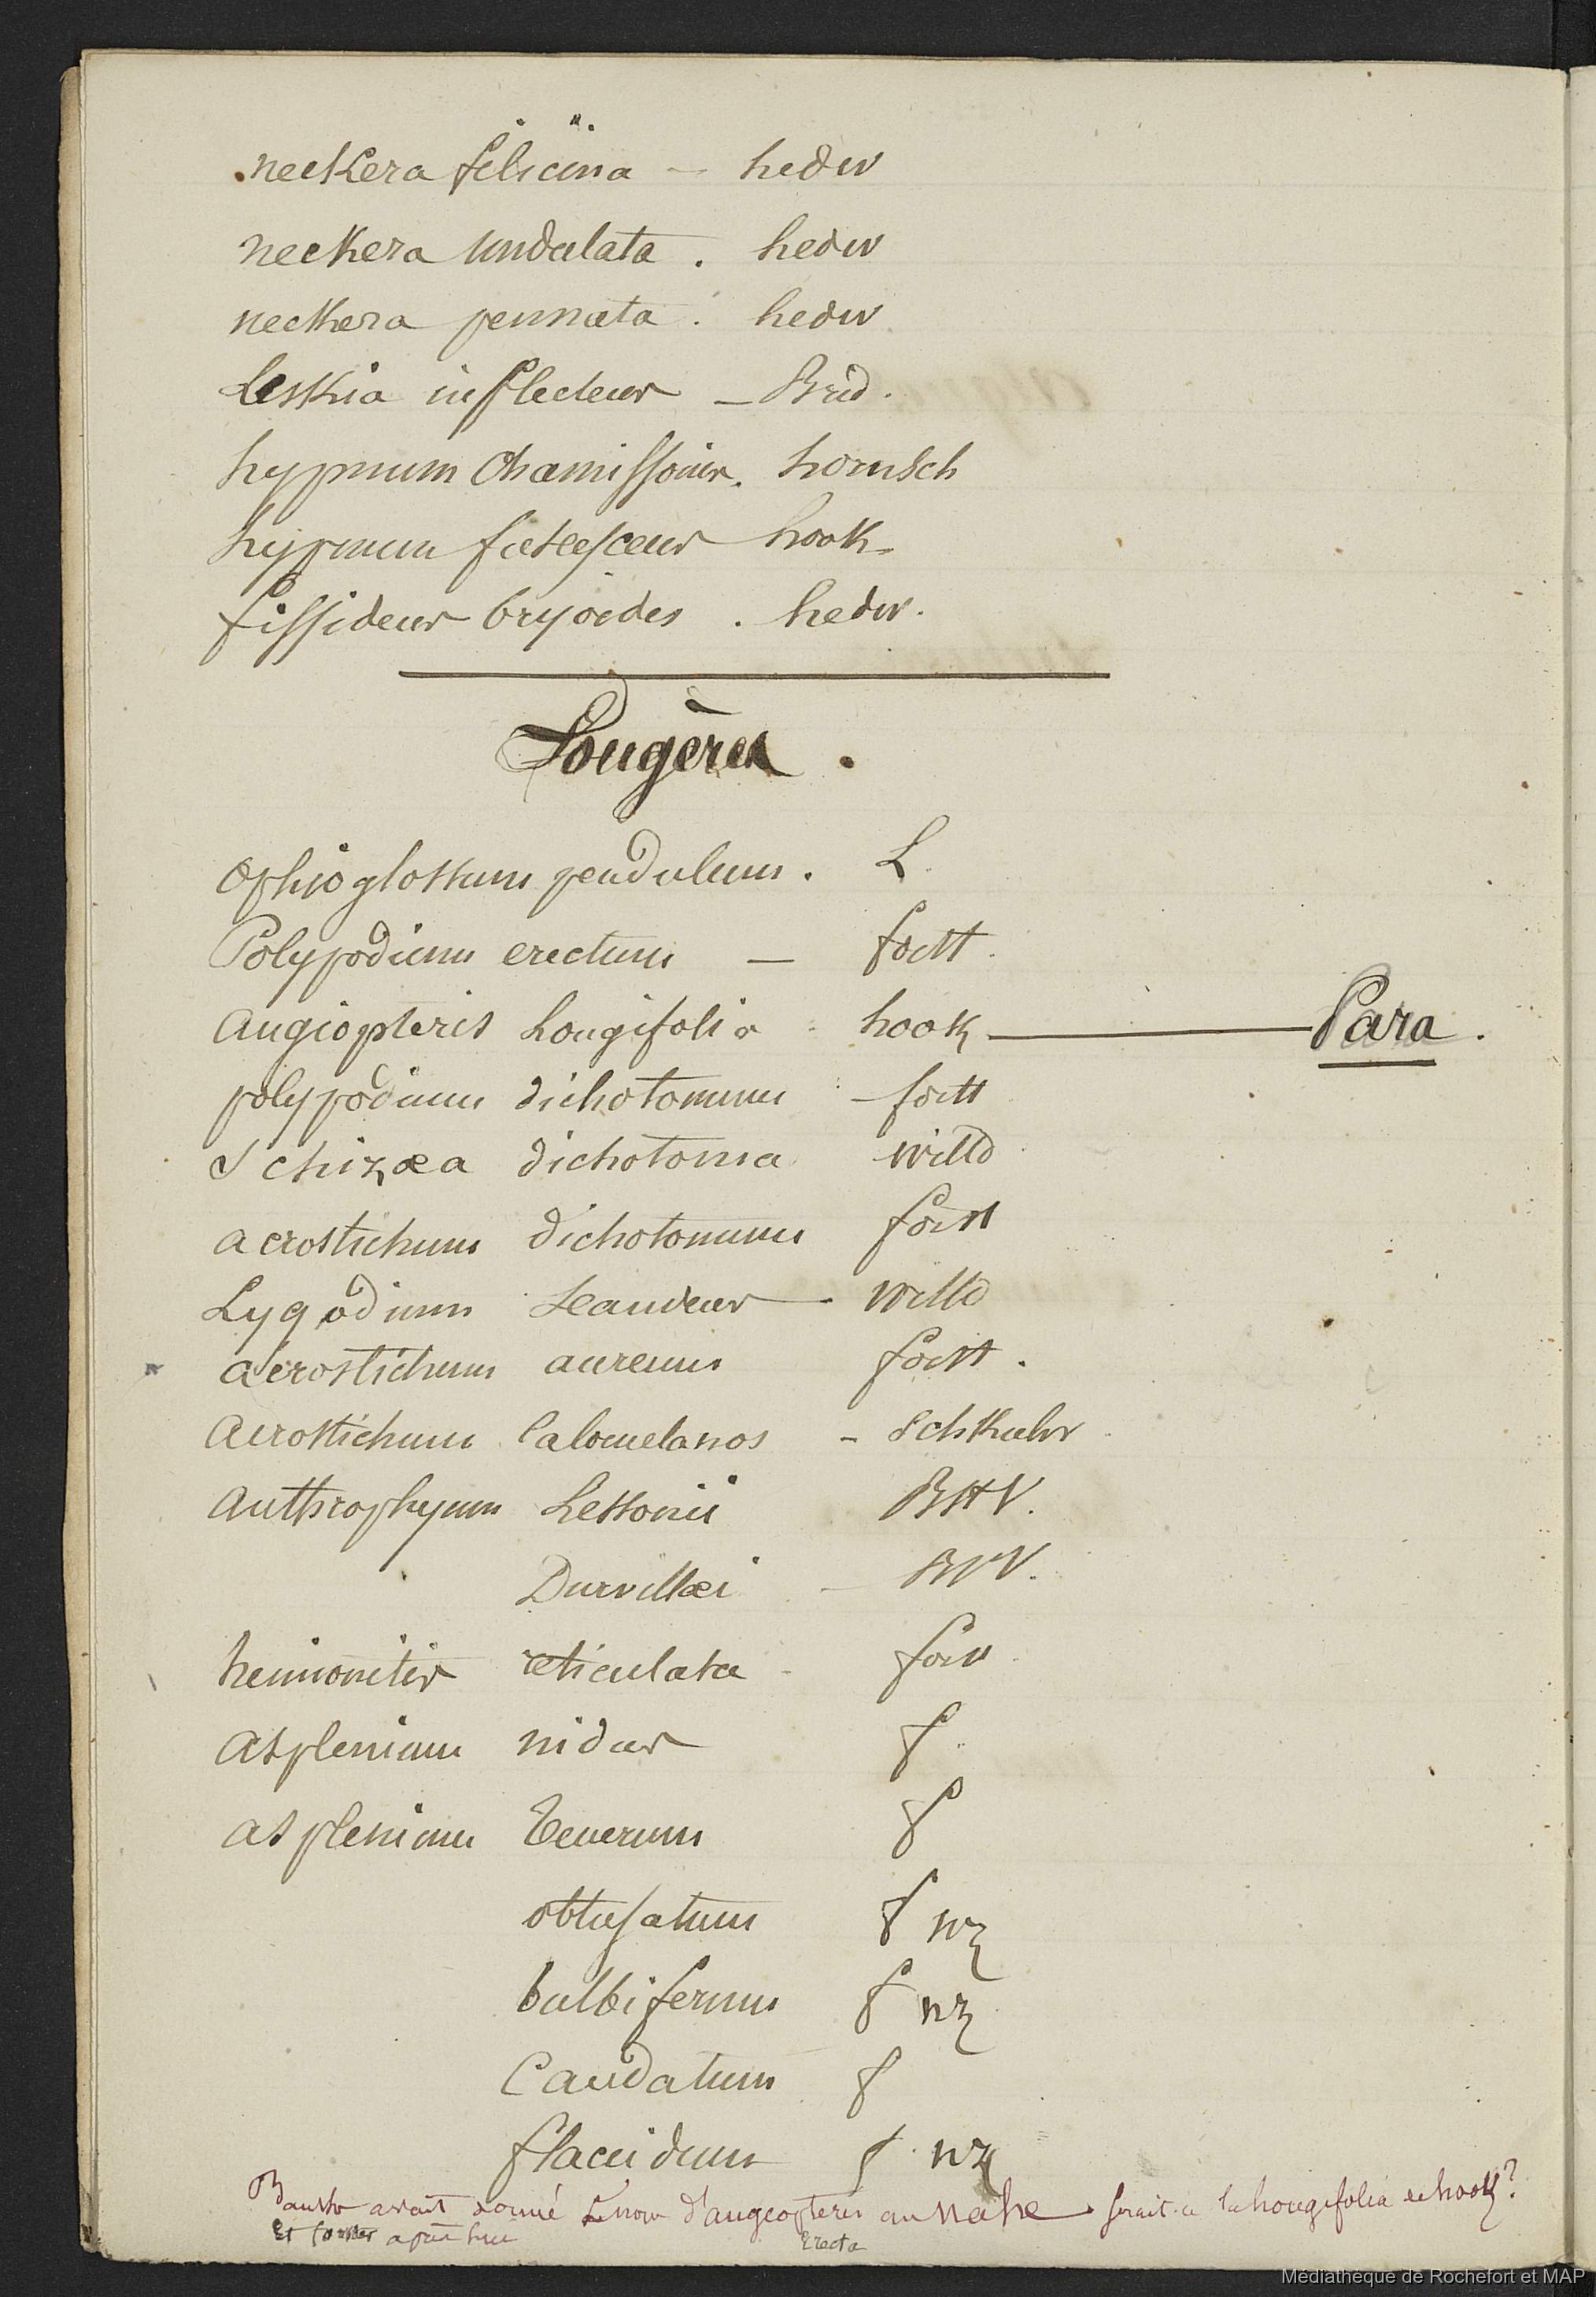 neckera filicina — hedw
neckera undulata . hedw
neckera pennata . hedw
Leskia inflectens — Brid.
hypnum Chamissonis. hornsch
hypnum hook
fissidens bryoides . hedw.
Fougères .
Ophioglossum pendulum . L
Polypodium erectum — forst.
Angiopteris Longifolia hook — Para .
polypodium dichotomum — forst
Schizæa dichotoma willd
acrostichum dichotomum forst
Lygodium scandens — willd
acrostichum aureum forst .
Acrostichum Calomelanos - Schkuhr
Anthrophyum Lessonii B
Durvillæi — B
hemionitis reticulata - fors
Asplenium nidus f.
asplenium tenerum f
obtusatum f nz
bulbiferum f nz
Caudatum f
flaccidum f. nz
Banks avait donné Le nom d'angiopteris au nahe serait-ce la Longifolia de hook ?
Et forster après lui Erecta
Médiathèque de Rochefort et MAP